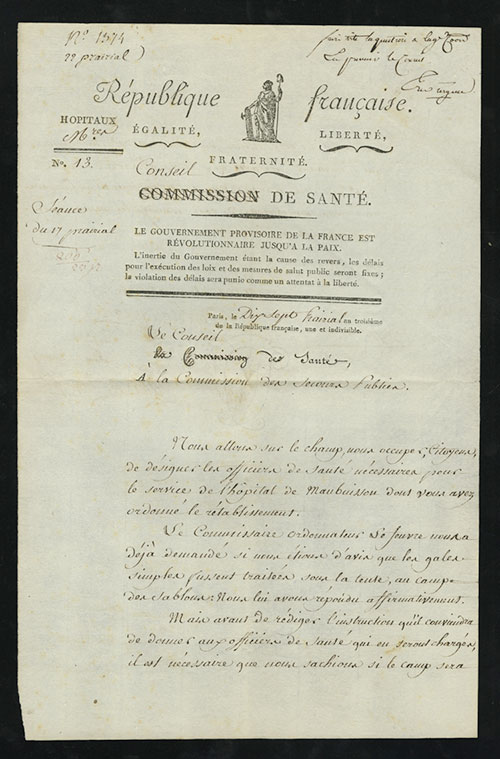 N° 1574
22 prairial
République française.
HOPITAUX
Mbres
ÉGALITÉ, LIBERTÉ,
FRATERNITÉ.
N°. 13.
Conseil
COMMISSION DE SANTÉ.
Séance
du 17 prairial
LE GOUVERNEMENT PROVISOIRE DE LA FRANCE EST
RÉVOLUTIONNAIRE JUSQU'A LA PAIX.
L'inertie du Gouvernement étant la cause des revers, les délais
pour l'exécution des loix et des mesures de salut public seront fixes;
la violation des délais sera punie comme un attentat à la liberté.
Paris, le Dix Sept Prairial an troisième
de la République française, une et indivisible.
Le Conseil
La Commission de Santé,
A la Commission des Secours Publics.
Nous allons sur le champ, nous occuper, Citoyens,
de désigner les officiers de Santé nécessaires pour
le service de l'hôpital de Maubuisson dont vous avez
ordonné le rétablissement.
Le Commissaire ordonnateur Le fouvre nous a
déjà demandé si nous étions d'avis que les gales
simples fussent traitées sous la tente, au camp
des Sablons: Nous lui avons repondu affirmativement.
Mais avant de rédiger l'instruction qu'il conviendra
de donner aux officiers de Santé qui en seront chargés,
il est nécessaire que nous sachions si le camp sera